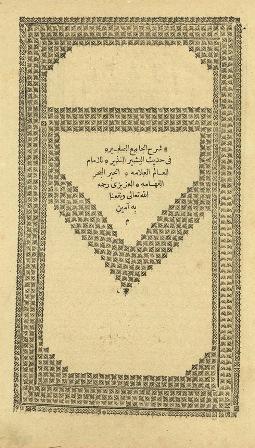 * شرح الجامع الصغير *
في حديث البشير النذير * للامام
العالم العلامه * الحبر البحر
الفهامه * العزيزى رحمه
الله تعالى ونفعنا
به آمين
م